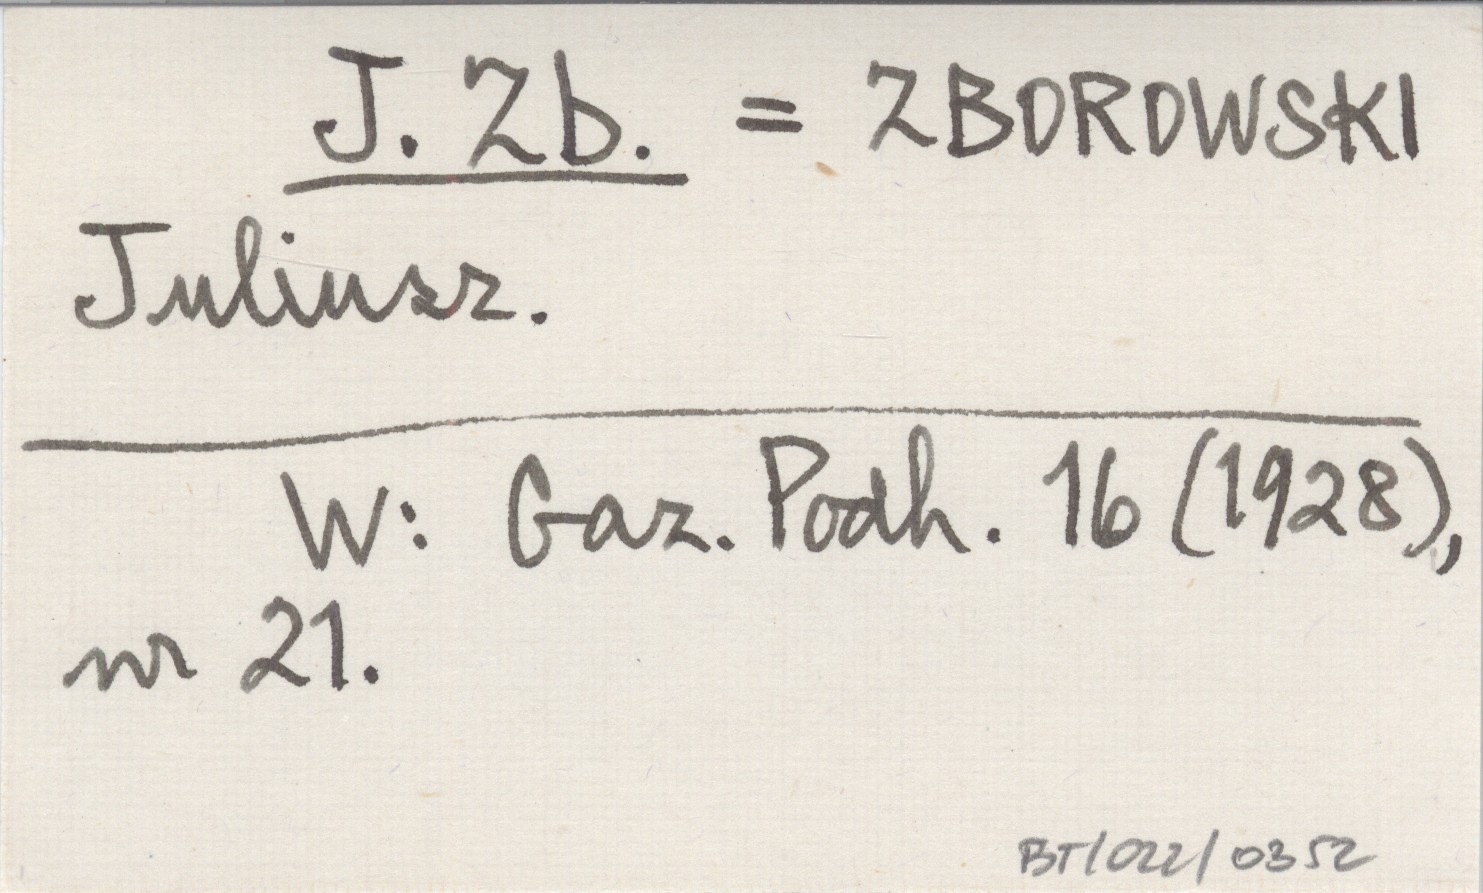 J. Zb. = ZBOROWSKI
Juliusz.
W: Gaz. Podh. 16 (1928),
nr 21.
BT/022/0352